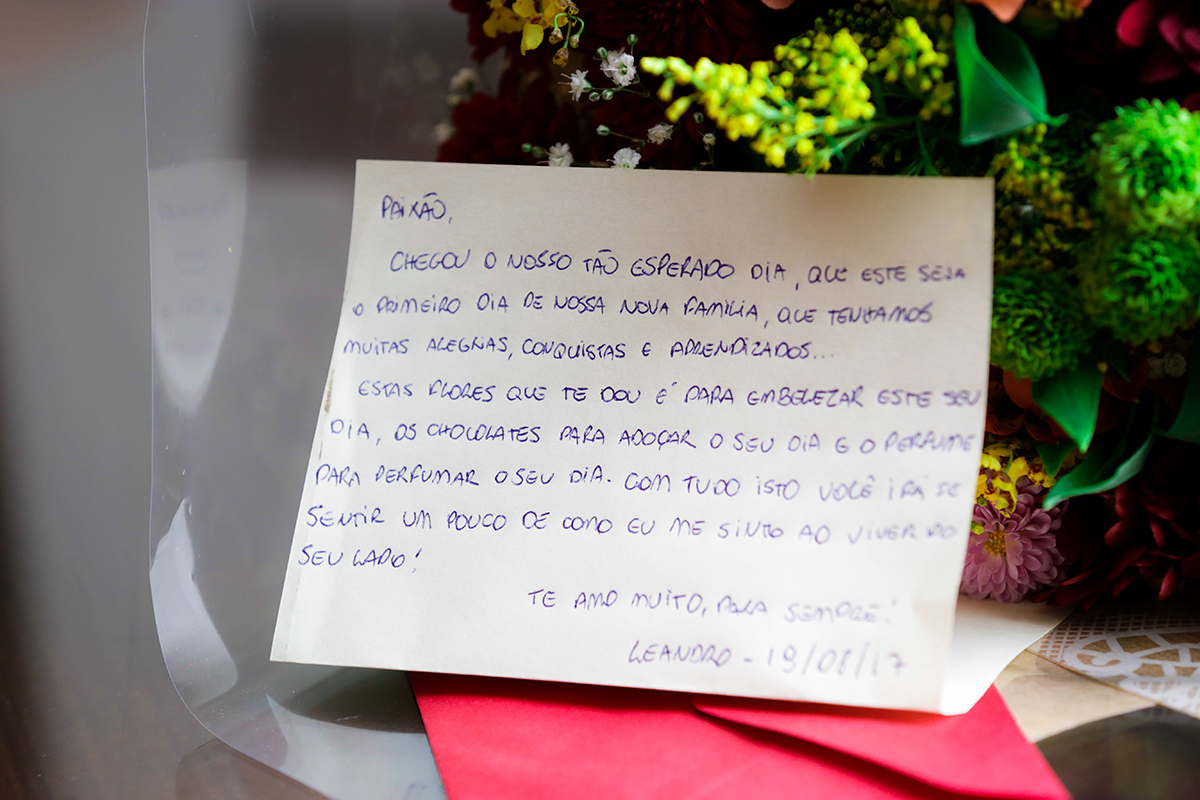 PAIXÃO,
CHEGOU O NOSSO TÃO ESPERADO DIA, QUE ESTE SEJA
O PRIMEIRO DIA DE NOSSA NOVA FAMÍLIA, QUE TENHAMOS
MUITAS ALEGRIAS, CONQUISTAS E APRENDIZADOS...
ESTAS FLORES QUE TE DOU É PARA EMBELEZAR ESTE SEU
DIA, OS CHOCOLATES PARA ADOÇAR O SEU DIA E O PERFUME
PARA PERFUMAR O SEU DIA. COM TUDO ISTO VOCÊ IRÁ SE
SENTIR UM POUCO DE COMO EU ME SINTO AO VIVER DO
SEU LADO!
TE AMO MUITO, PARA SEMPRE!
LEANDRO - 19/08/17